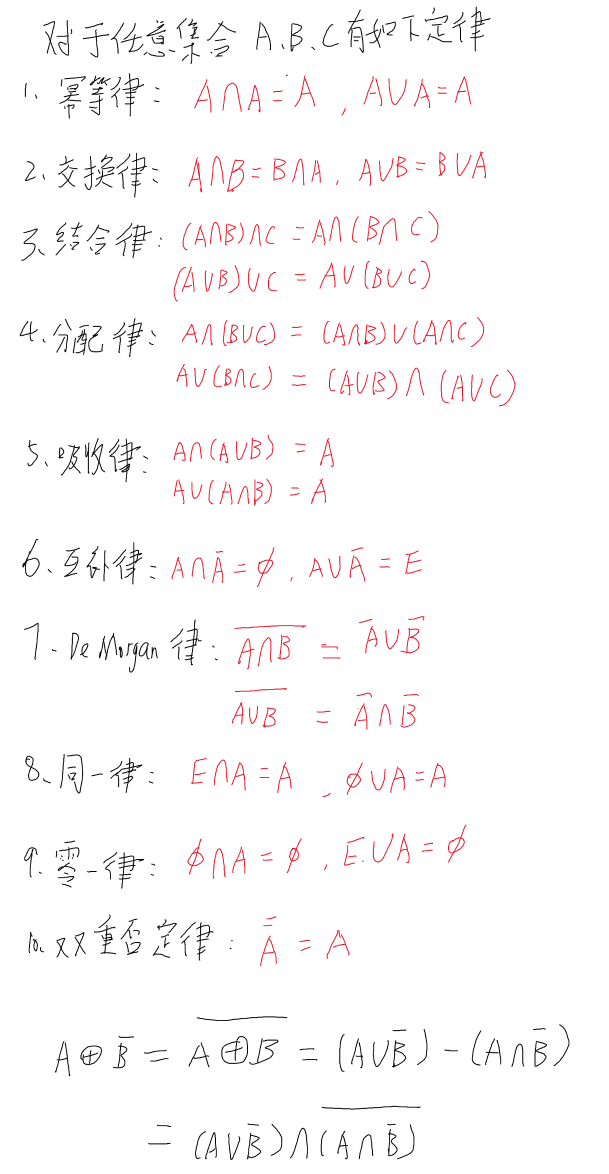 对于任意集合 A、B、C有如下定律
1、幂等律： A∩A=A ， A∪A=A
2、交换律： A∩B=B∩A， A∪B=B∪A
3、结合律： (A∩B)∩C =A∩(B∩C)
(A∪B)∪C = A∪(B∪C)
4、分配律： A∩(B∪C) = (A∩B)∪(A∩C)
A∪(B∩C) = (A∪B)∩(A∪C)
5、吸收律： A∩(A∪B) = A
A∪(A∩B) = A
6、互补律： A∩A̅=∅ ，A∪A̅=E
7、De Morgan 律： \overline{A∩B} = A̅∪B̅
\overline{A∪B} = A̅∩B̅
8、同一律： E∩A=A ，∅∪A=A
9、零一律： ∅∩A=∅ ，E∪A=∅
10、双重否定律： A̿ = A
A⊕B̅ = \overline{A⊕B} = (A∪B̅)-(A∩B̅)
= (A∪B̅)∩\overline{(A∩B̅)}